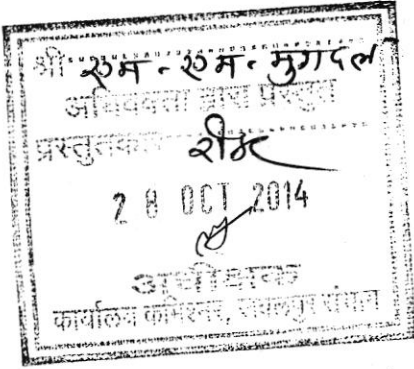 श्री एम. एम. मुगदल
अधिवक्ता द्वारा प्रस्तुत
प्रस्तुतकार रीडर
28 OCT 2014
अधीक्षक
कार्यालय कमिश्नर, संभाग